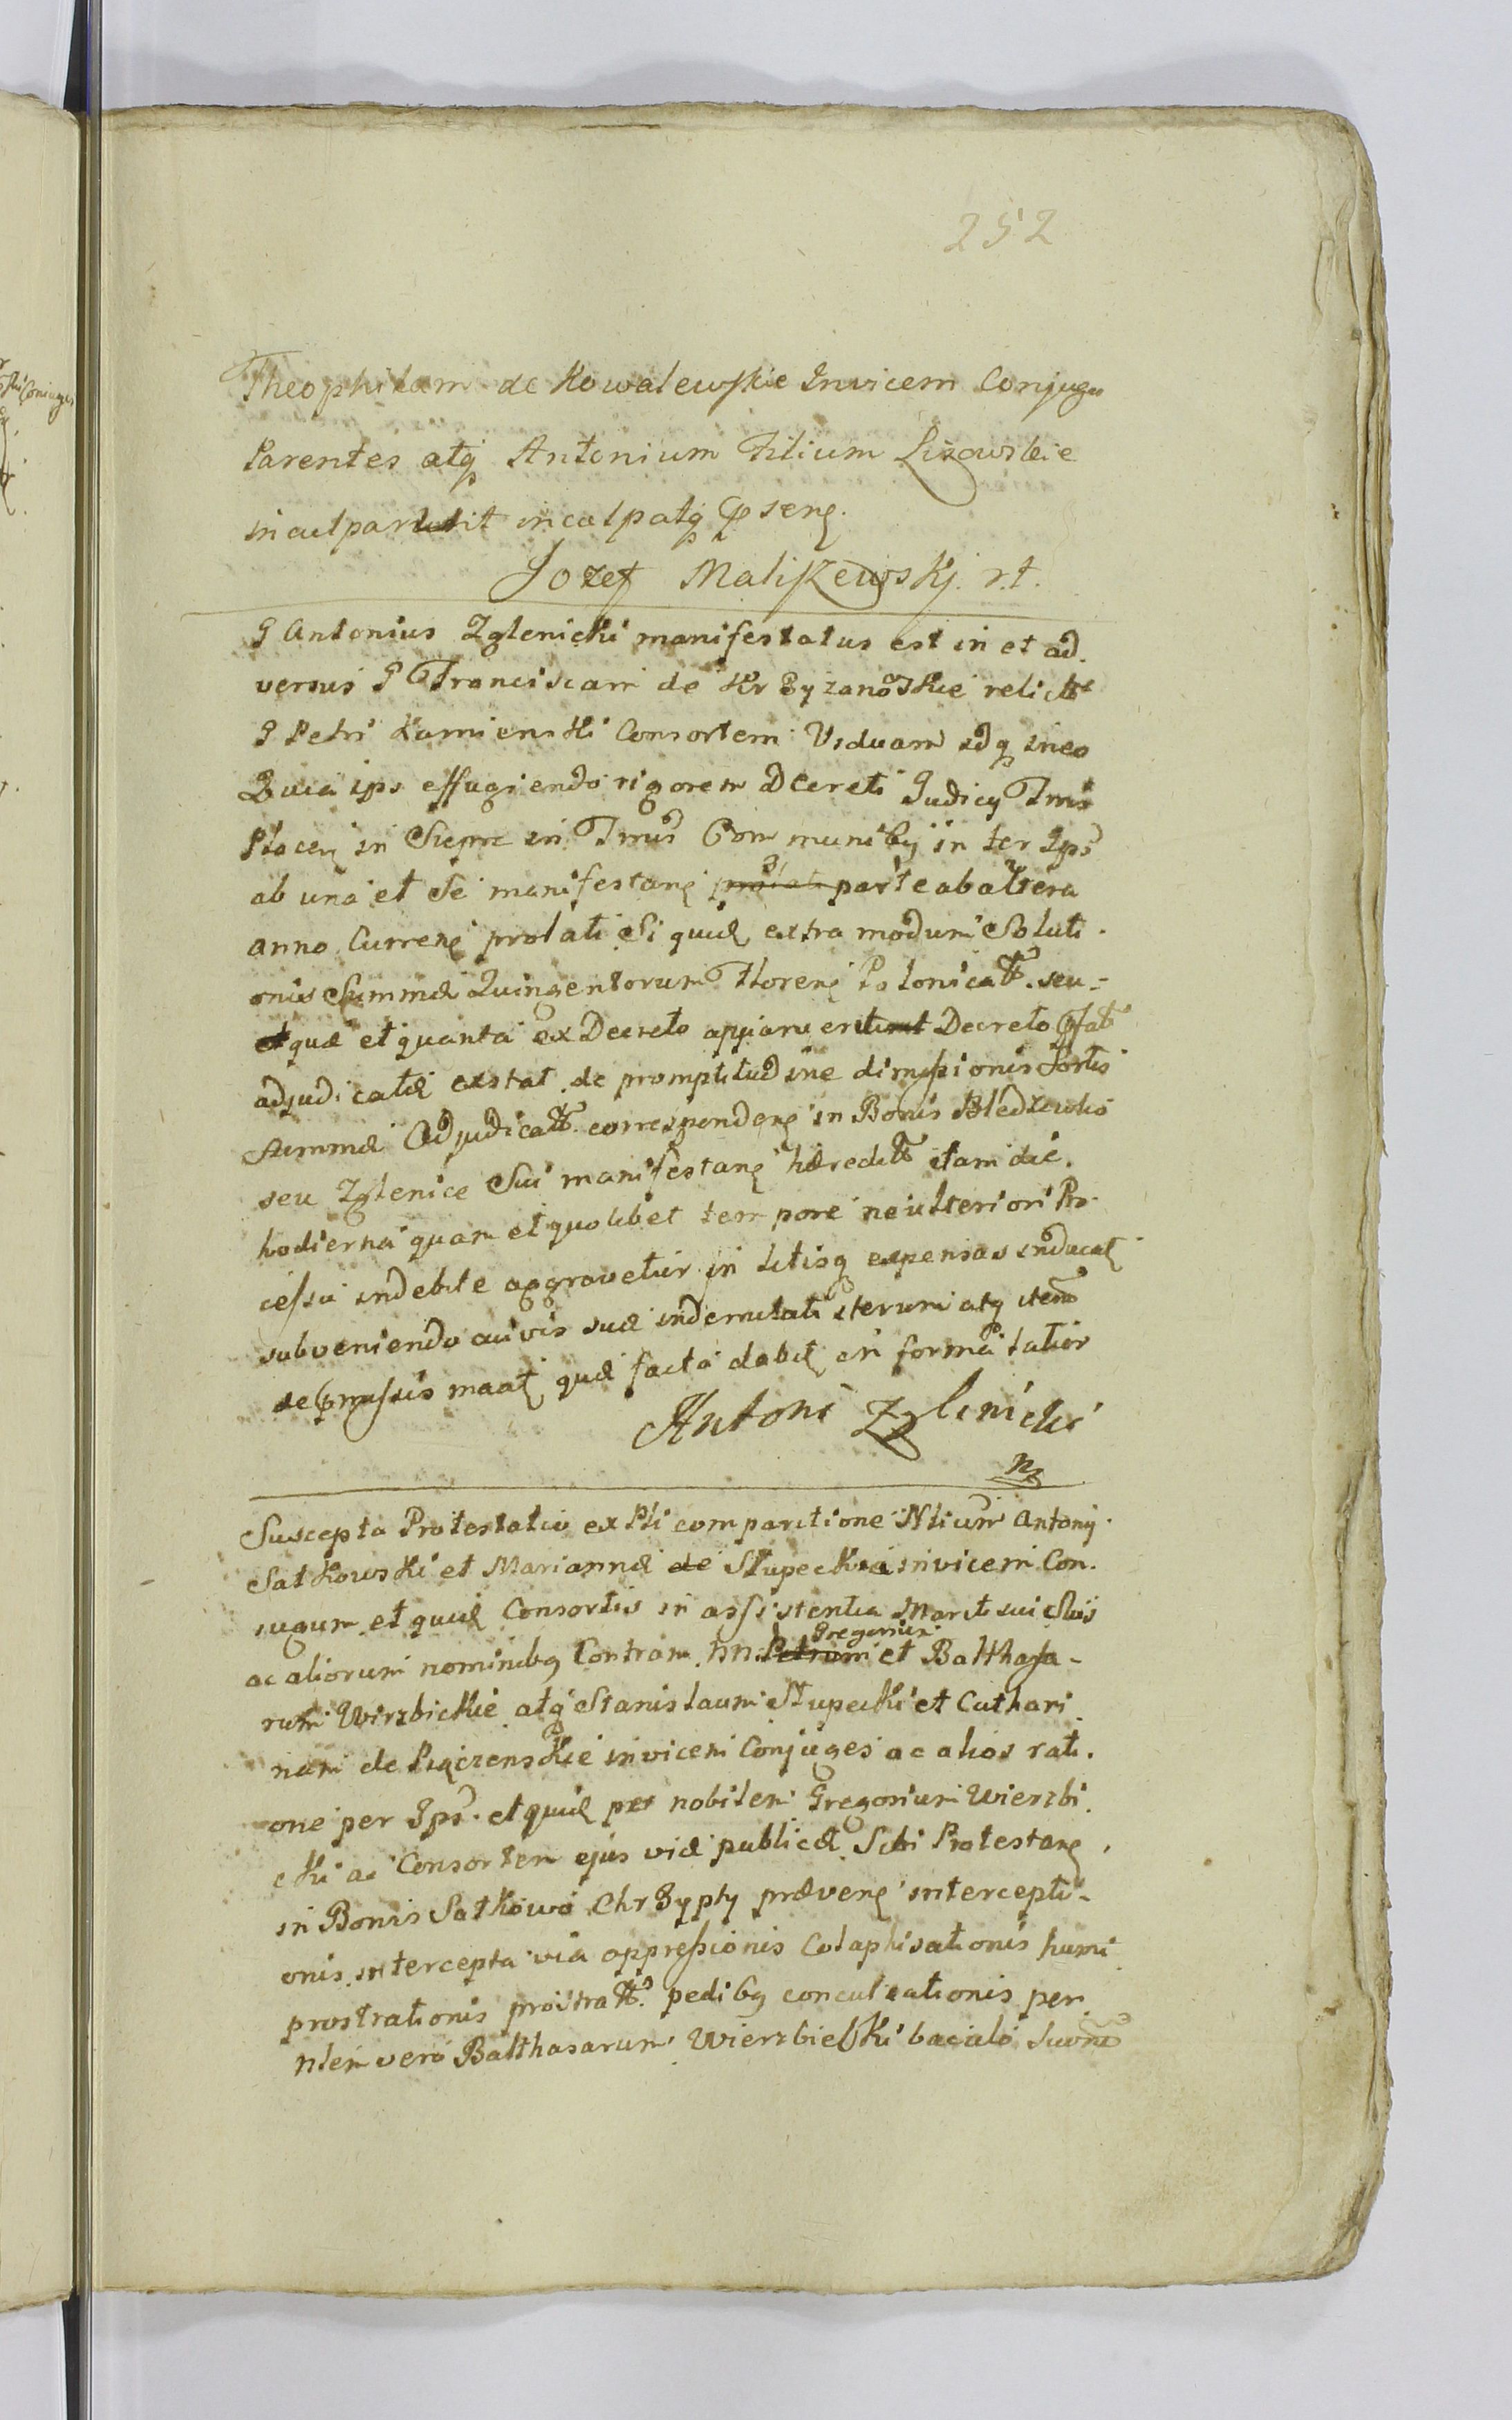 252
Theophilam de Kowalewskie Invicem Conjuges
Parentes atq Antonium Filium Lisowskie
inculpavit inculpatq pseng.
Jozef Maliszewskj. r.t.
G Antonius Zglenicki manifestatus est in et ad.
versus G Franciscam de Krzyzanoskie relictt
G Petri Kamienski Consortem Viduam idq ineo
Quia ips effugiendo rigorem Decreti Judicij Trmis
Placen in Sieprc in Trmis Communiby inter Ips
ab una et Se manifestang parte ab altera
anno Curreng prolati Si quid extra modum Soluti.
onis Summæ Quingentorum Floreng Polonicatt. seu-
quæ et quanta ex Decreto apparuerit Decreto pfatt
adjudicatæ exstat de promptitudine dimissionis Sortis
Summæ Adjudicatt. correspondeng in Bonis Bledzewko
seu Zglenice Sui manifestang hæreditt etam die.
hodierna quam et quolibet tempore ne ulteriori Pro-
cessu indebite aggravetur in litisq expensas inducat
subveniendo cuivis suæ indemnitati iterum atq item
de præmissis maat quæ facta dabit in forma latior
Antoni Zglinicki
mp
Suscepta Protestatio ex Pli comparitione Nlium Antonij.
Satkowski et Mariannæ Stupeckia invicem Con.
iugum et quid Consortis in assistentia Mariti sui Suis
ac aliorum nominibq Contram. nn. Gregorium et Balthasa-
rum Wirzbickie atq Stanislaum Stupecki et Cathari.
nam de invicem Conjuges ac alios rati.
one per Ips. et quid per nobilem Gregorium Wierzbi.
cki ac Consortem ejus viæ publicæ Sibi Protestang.
in Bonis Satkowo Chrzypty præveng intercepti-
onis intercepta via oppressionis Colaphisationis humi
prostrationis prostratt. pedibq conculcationis per.
nlem vero Balthasarum Wierzbicki baculo